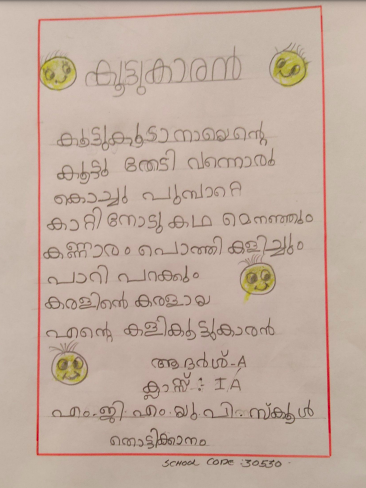 കൂട്ടുകാരൻ
കൂട്ടുകൂടാനായെന്റെ
കൂട്ടു തേടി വന്നൊരു
കൊച്ചു പൂമ്പാറ്റെ
കാറ്റിനോടു കഥ മെനഞ്ഞും
കണ്ണാരം പൊത്തി കളിച്ചും
പാറി പറക്കും
കരളിന്റെ കരളായ
എന്റെ കളികൂട്ടുകാരൻ
ആദർശ്-A
ക്ലാസ്സ് : I A
എം.ജി.എം.യു.പി. സ്കൂൾ
തൊട്ടിക്കാനം
SCHOOL CODE :30550